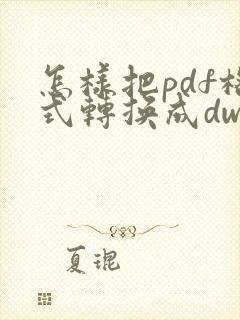 怎樣把pdf格
式轉換成dw
夏琨